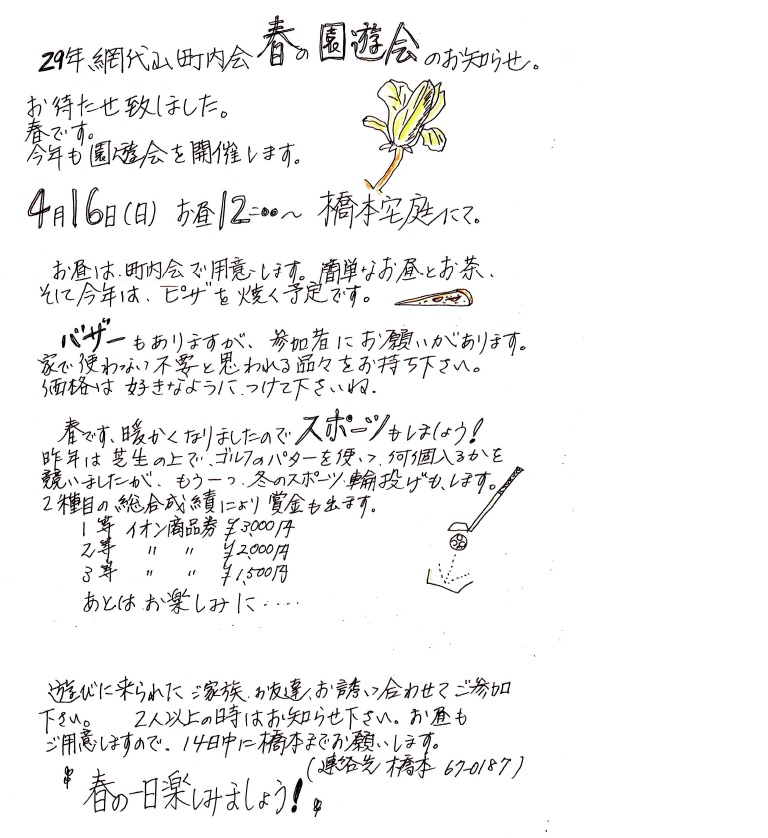 29年 網代山町内会 春の園遊会のお知らせ。
お待たせ致しました。
春です。
今年も園遊会を開催します。
4月16日(日) お昼12:00～ 橋本宅庭にて。
お昼は、町内会で用意します。簡単なお昼とお茶、
そして今年は、ピザを焼く予定です。
バザーもありますが、参加者にお願いがあります。
家で使わない不要と思われる品々をお持ち下さい。
価格は好きなようにつけて下さいね。
春です、暖かくなりましたのでスポーツもしましょう!
昨年は芝生の上で、ゴルフのパターを使って、何個入るかを
競いましたが、もう一つ、冬のスポーツ、輪投げも、します。
2種目の総合成績により賞金も出ます。
1等 イオン商品券 ¥3,000円
2等 〃 〃 ¥2,000円
3等 〃 〃 ¥1,500円
あとは お楽しみに・・・・
遊びに来られたご家族、お友達、お誘い合わせてご参加
下さい。 2人以上の時はお知らせ下さい。お昼も
ご用意しますので、14日中に橋本までお願いします。
(連絡先 橋本 67-0187)
春の一日楽しみましょう!